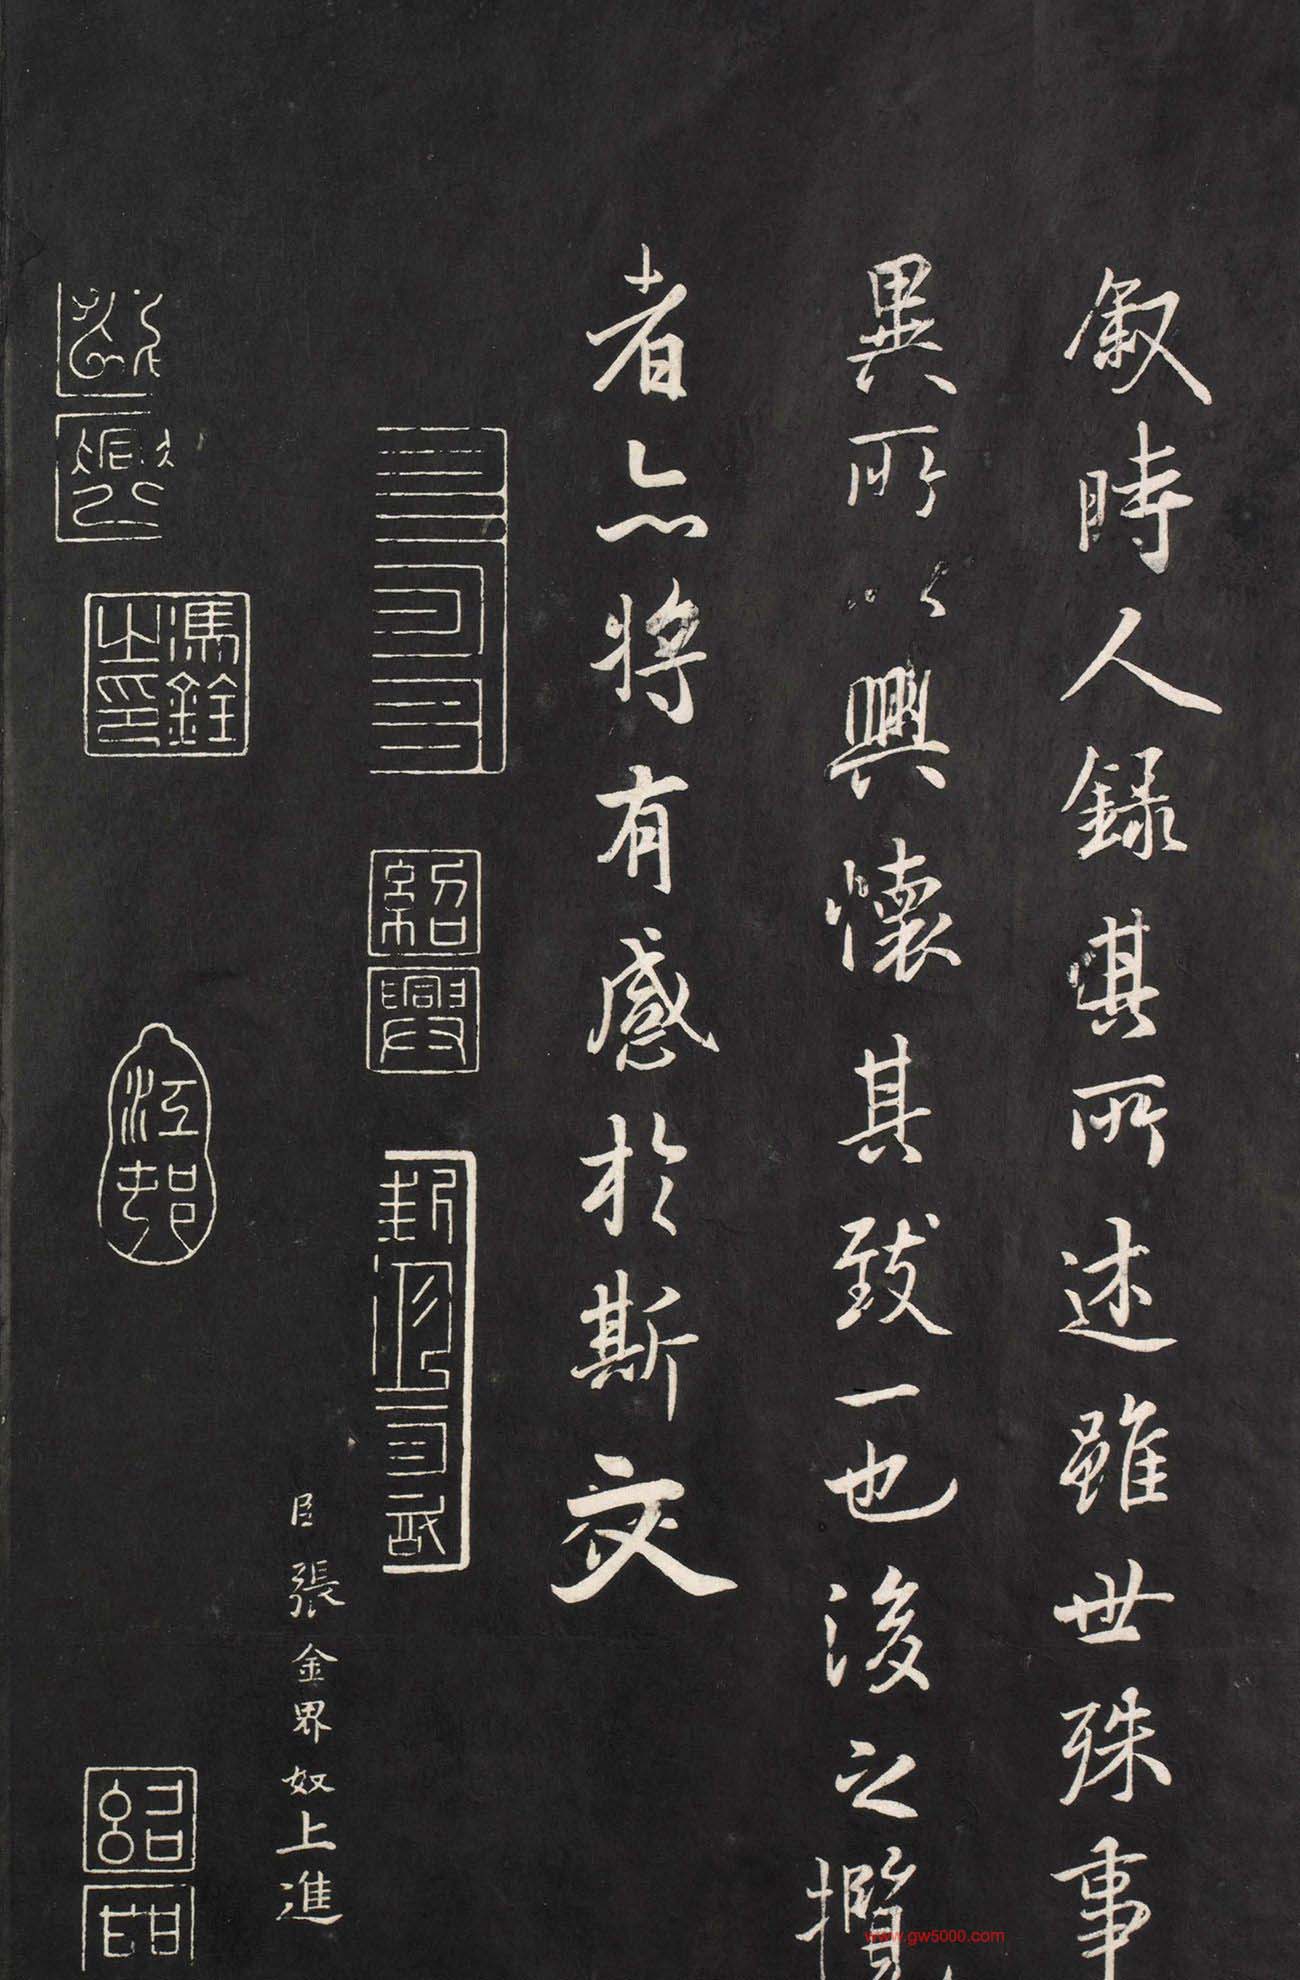 叙時人錄其所述雖世殊事
異所以興懷其致一也後之攬
者亦將有感於斯文
臣張金界奴上進
紹興
馮銓之印
江邨
www.gw5000.com